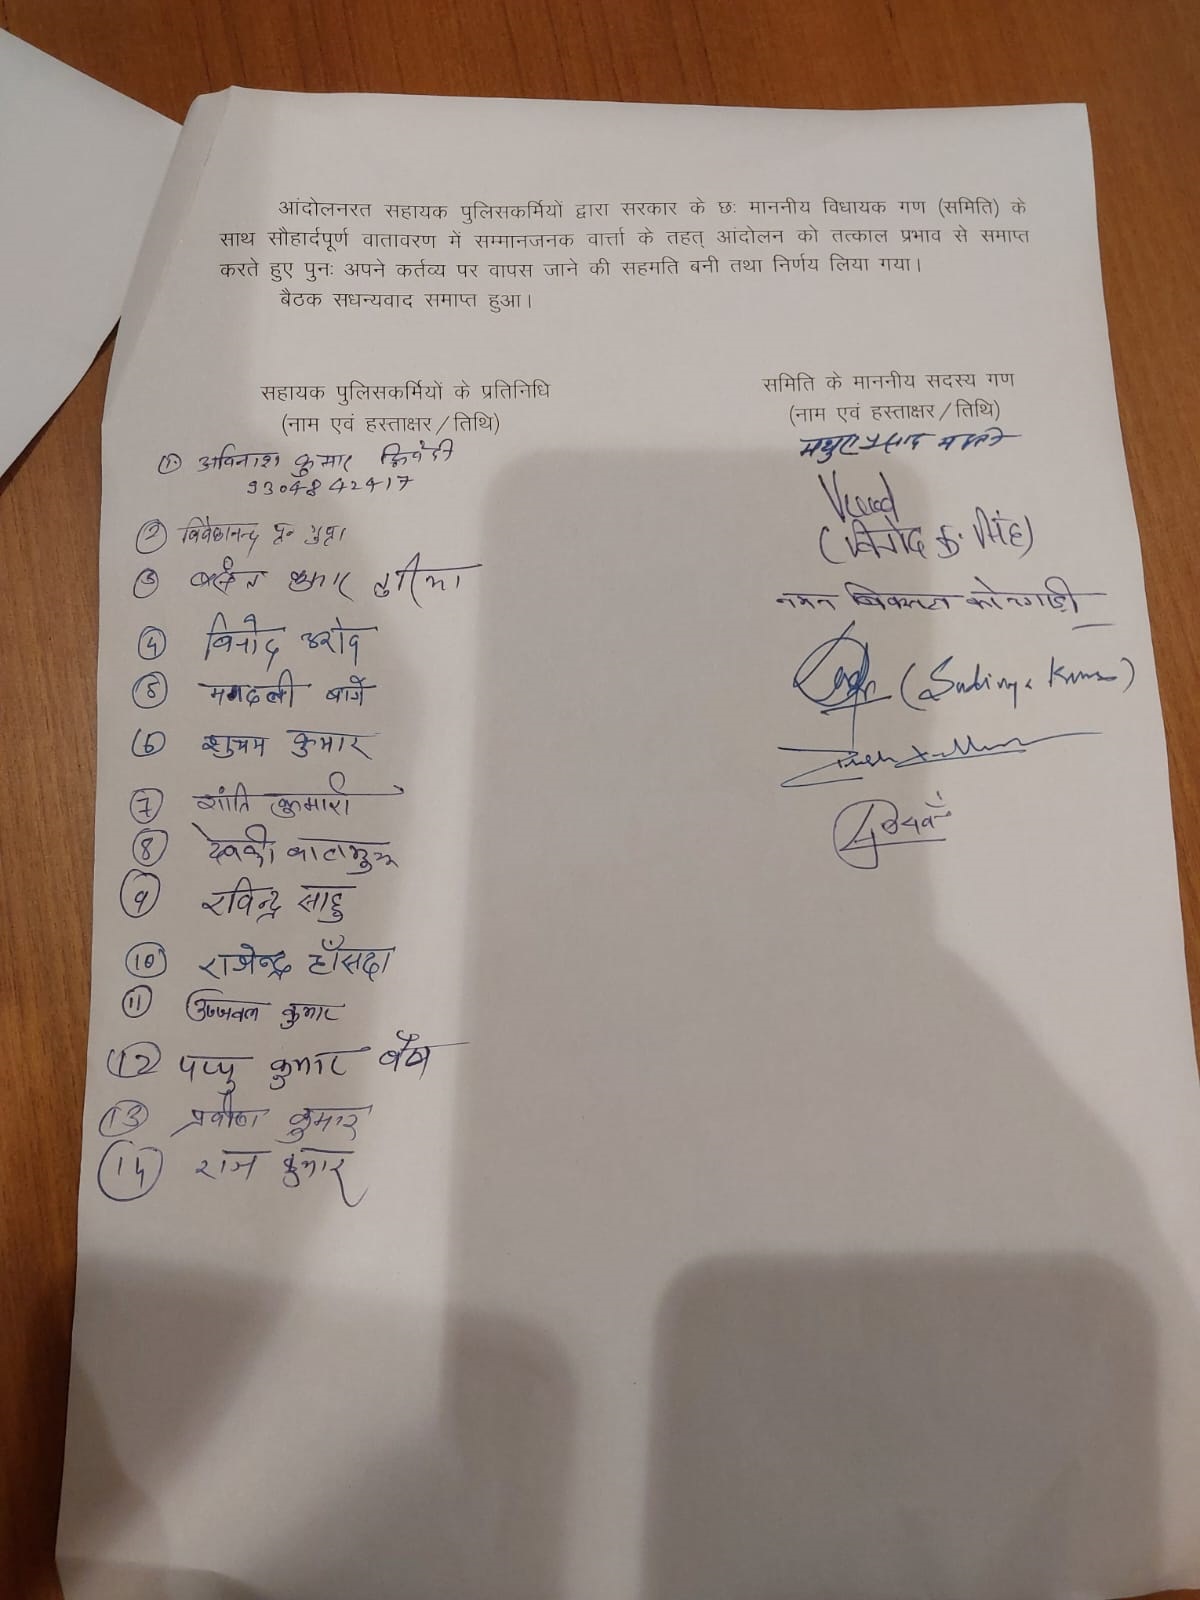 आंदोलनरत सहायक पुलिसकर्मियों द्वारा सरकार के छः माननीय विधायक गण (समिति) के
साथ सौहार्दपूर्ण वातावरण में सम्मानजनक वार्त्ता के तहत् आंदोलन को तत्काल प्रभाव से समाप्त
करते हुए पुनः अपने कर्तव्य पर वापस जाने की सहमति बनी तथा निर्णय लिया गया।
बैठक सधन्यवाद समाप्त हुआ।
सहायक पुलिसकर्मियों के प्रतिनिधि
(नाम एवं हस्ताक्षर/तिथि)
① अविनाश कुमार द्विवेदी
9304842417
② विवेकानन्द गुप्ता
③ कुमार
④ विनोद उरांव
⑤ मगदली बागे
⑥ शुभम कुमार
⑦ शांति कुमारी
⑧ देवकी
⑨ रविन्द्र साहु
⑩ राजेन्द्र हाँसदा
⑪ उज्जवल कुमार
⑫ पप्पु कुमार
⑬ प्रवीण कुमार
⑭ राज कुमार
समिति के माननीय सदस्य गण
(नाम एवं हस्ताक्षर/तिथि)
मथुरा प्रसाद महतो
(विनोद कु. सिंह)
नमन बिक्सल कोनगाड़ी